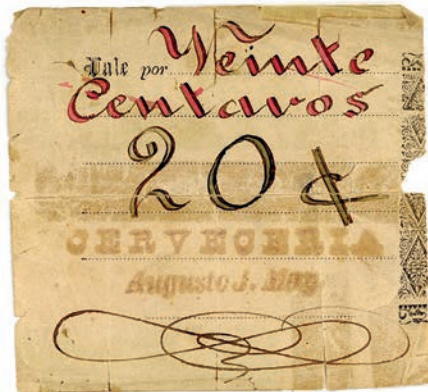 Vale por Veinte
Centavos
20 ¢
CERVECERIA
Augusto J.